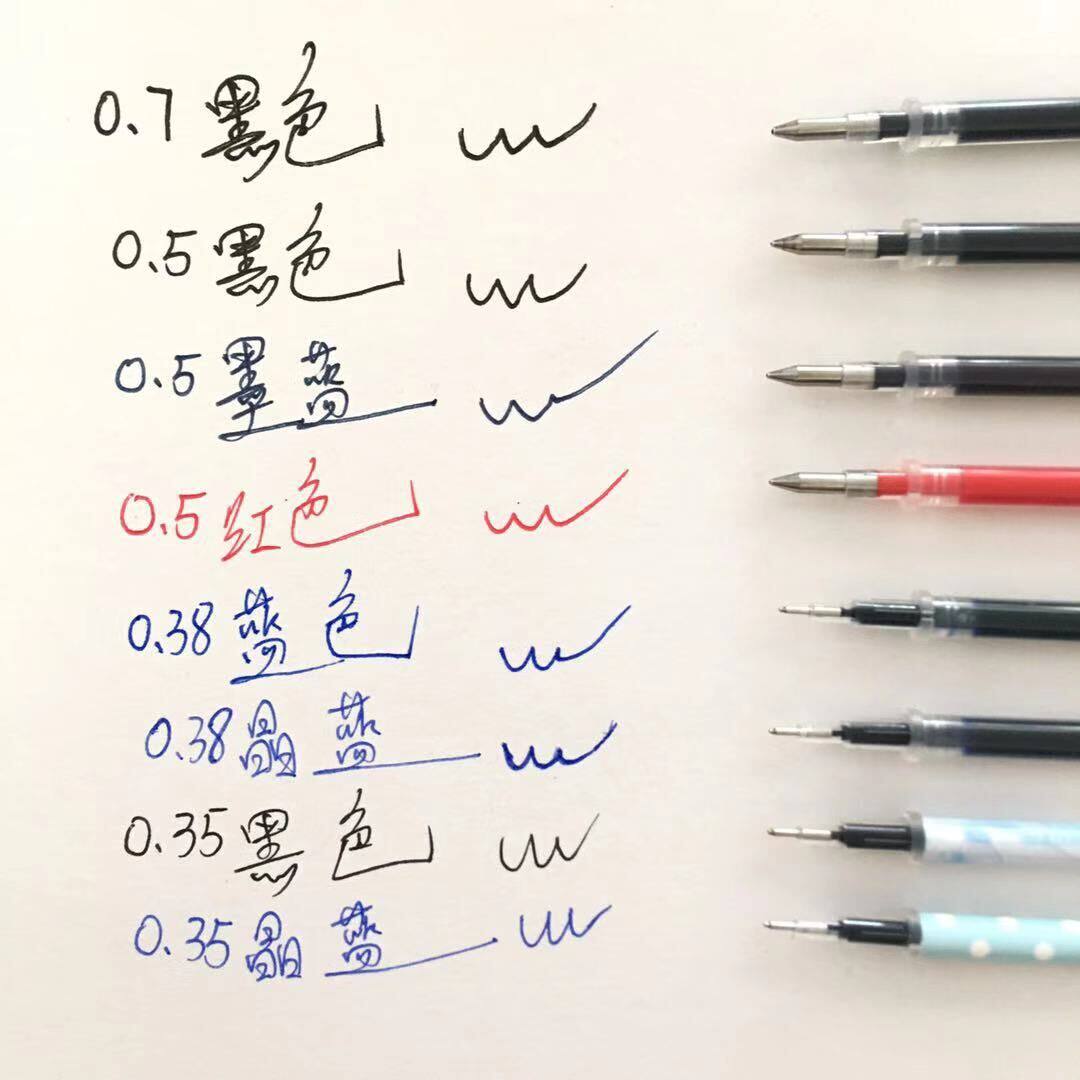 0.7 黑色
0.5 黑色
0.5 墨蓝
0.5 红色
0.38 蓝色
0.38 晶蓝
0.35 黑色
0.35 晶蓝